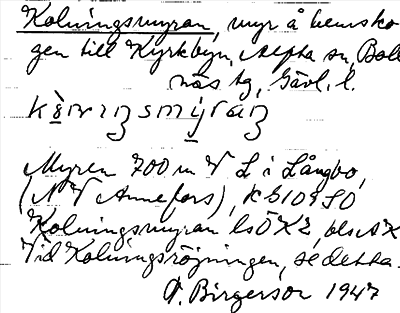 Kolningsmyran, myr å hemsko
gen till Kyrkbyn, Alfta sn, Boll
näs tg, Gävl. l.
Myren 700 m V L i Långbo,
(N V Annefors), kb 109 SO
Kolningsmyran
Vid Kolningsröjningen, se detta.
P. Birgerson 1947